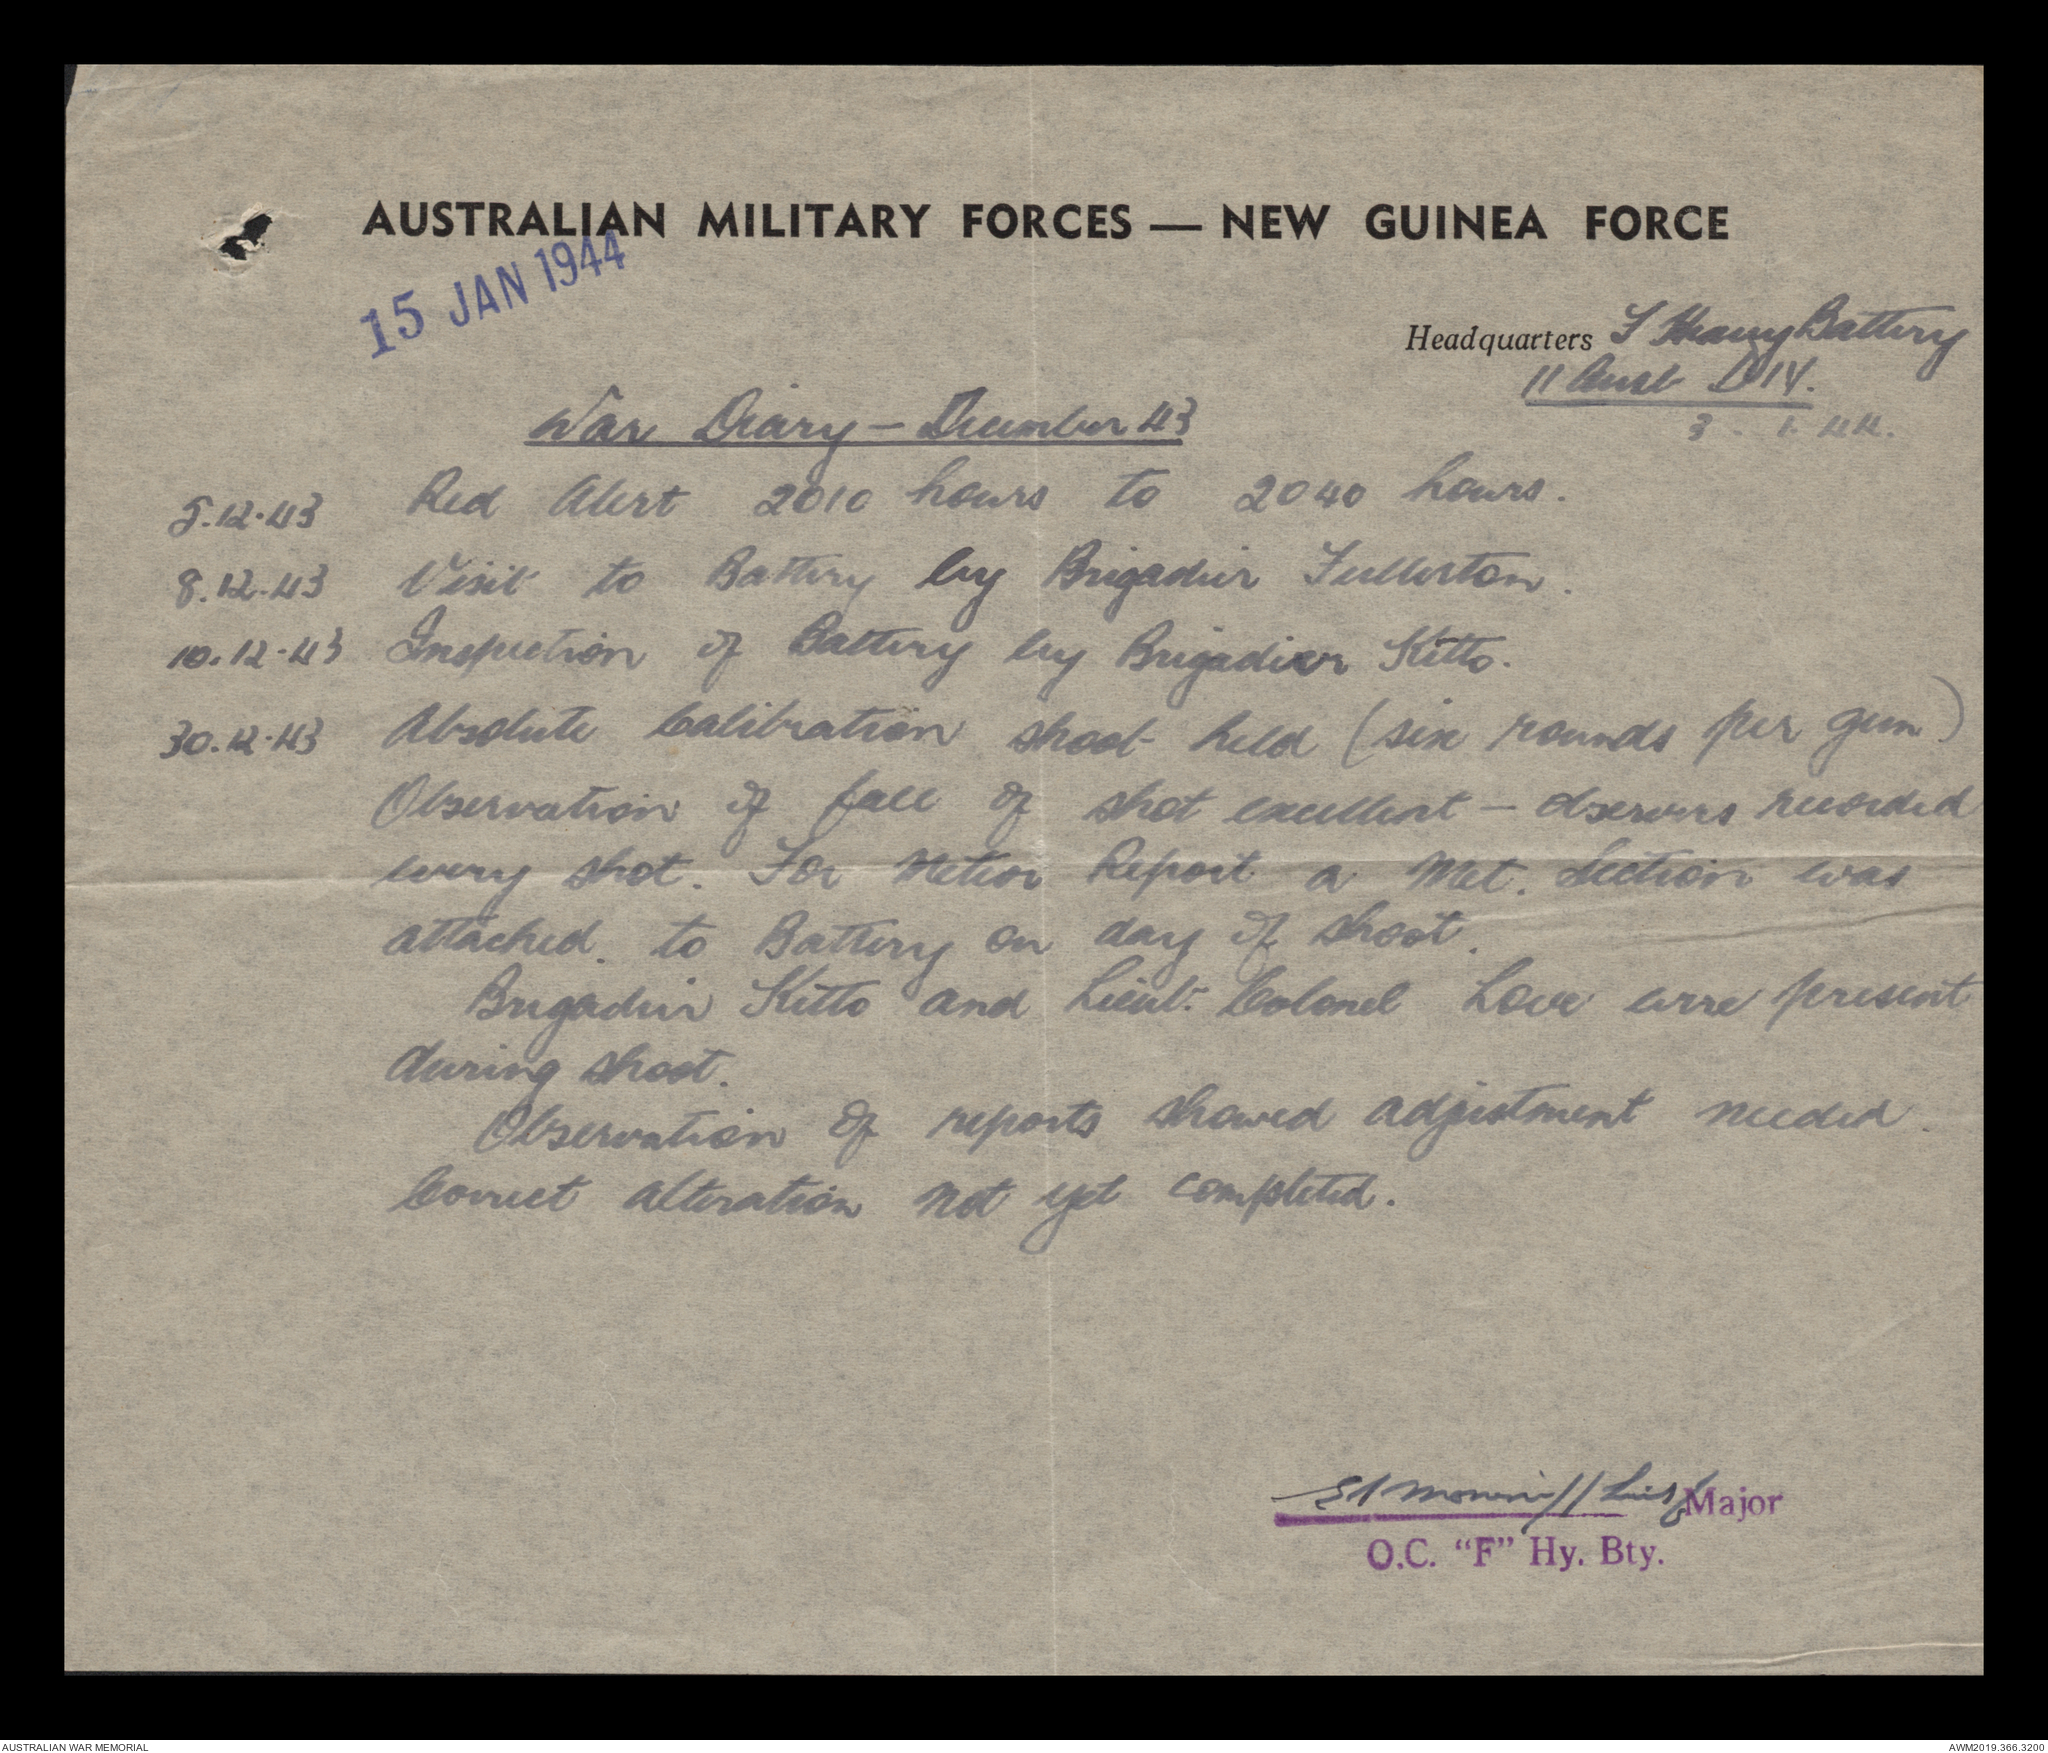 AUSTRALIAN MILITARY FORCES — NEW GUINEA FORCE
15 JAN 1944
Headquarters F Heavy Battery
11 Aust DIV.
3.1.44.
War Diary - December 43
5.12.43 Red Alert 2010 hours to 2040 hours.
8.12.43 Visit to Battery by Brigadier Fullerton.
10.12.43 Inspection of Battery by Brigadier Kitto.
30.12.43 Absolute Calibration shoot held (six rounds per gun)
Observation of fall of shot excellent - observers recorded
every shot. For Meteor Report a Met. Section was
attached. to Battery on day of shoot.
Brigadier Kitto and Lieut. Colonel Love were present
during shoot.
Observation of reports showed adjustment needed.
Correct alteration not yet completed.
Major
O.C. "F" Hy. Bty.
AUSTRALIAN WAR MEMORIAL
AWM2019.366.3200